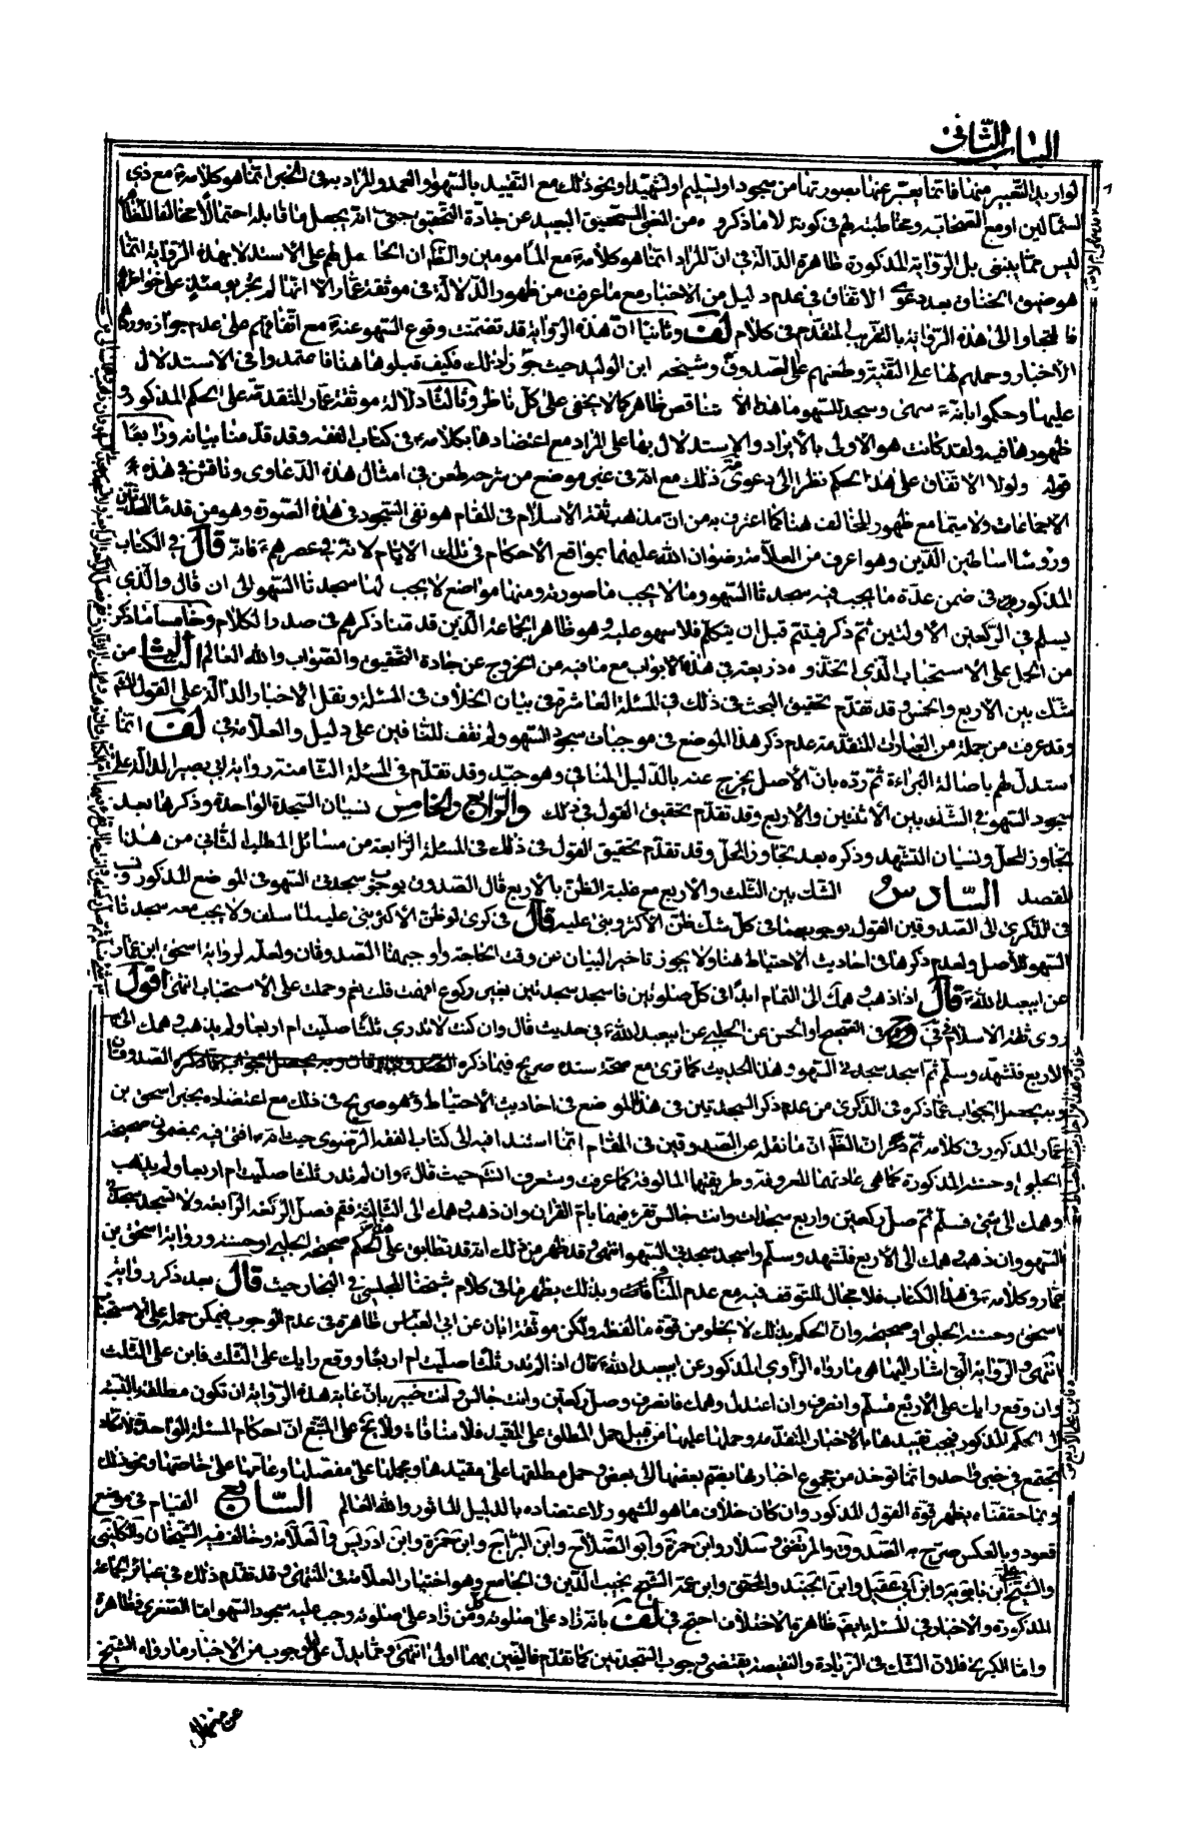 الباب الثاني
لو اريد التعبير عنها فانما يعبر عنها بصورتها من سجود او تسليم او تشهد او نحو ذلك مع التقييد بالسهو او العمد والمراد به في الخبر انما هو كلامه مع ذي
الشمالين او مع الصحابة ومخاطبته لهم في كونه لا ما ذكروه ومن الغير المستحق البعيد عن جادة التحقيق حتى انه يجعل ما قابله احتمالا مخالفا للظاهر
ليس مما ينبغي بل الرواية المذكورة ظاهرة الدلالة في ان المراد انما هو كلامه مع المأمومين والظاهر ان الحامل لهم على الاستدلال بهذه الرواية انما
هو ضيق الخناق بعد دعوى الاتفاق في عدم دليل من الاخبار مع ما عرفت من ظهور الدلالة في موثقة عمار الا انها لم تجر
فالتجاوا الى هذه الرواية بالتقريب المتقدم في كلام لف وثانيا ان هذه الرواية قد تضمنت وقوع السهو عنه مع اتفاقهم على عدم جوازه وردهم
الاخبار وحملهم لها على التقية وطعنهم على الصدوق وشيخه ابن الوليد حيث جوزا ذلك فكيف قبلوها هنا فاعتمدوا في الاستدلال
عليها وحكموا بانه سهى وسجد للسهو ما هذا الا تناقض ظاهر كما لا يخفى على كل ناظر وثالثا دلالة موثقة عمار المتقدمة على الحكم المذكور و
ظهورها فيه ولقد كانت هو الاولى بالايراد والاستدلال بها على المراد مع اعتضادها بكلامه في كتاب الفقه وقد قدمنا بيانه ورابعا
قوله ولولا الاتفاق على هذا الحكم نظرا الى دعوى ذلك مع انه في غير موضع من شرحه طعن في امثال هذه الدعاوى وناقش في هذه
الاجماعات ولا سيما مع ظهور المخالف هنا كما اعترف به من ان مذهب ثقة الاسلام في المقام هو نفى السجود في هذه الصورة وهو من قدماء
ورؤساء اساطين الدين وهو اعرف من العلامة رضوان الله عليهما بمواقع الاحكام في تلك الايام لانه في عصرهم فانه قال في الكتاب
المذكور في ضمن عدة ما يجب فيه سجدتا السهو وما لا يجب ما صورته ومنها مواضع لا يجب لها سجدتا السهو الى ان قال والذي
يسلم في الركعتين الاولتين ثم ذكر فيتم قبل ان يتكلم فلا سهو عليه وهو ظاهر الجماعة الذين قدمنا ذكرهم في صدر الكلام وخامسا ما ذكره
من الحمل على الاستحباب الذي اتخذوه ذريعة في هذه الابواب مع ما فيه من الخروج عن جادة التحقيق والصواب والله العالم الثالث من
شك بين الاربع والخمس وقد تقدم تحقيق البحث في ذلك في المسئلة العاشرة في بيان الخلاف في المسئلة ونقل الاخبار الدالة على القول
وقد عرفت من جملة من العبارات المتقدمة عدم ذكر هذا الموضع في موجبات سجود السهو ولم نقف للنافين على دليل والعلامة في لف انما
استدل لهم باصالة البراءة ثم رده بان الاصل يخرج عنه بالدليل المنافي وهو جيد وقد تقدم في المسئلة الثامنة رواية ابي بصير الدالة على
سجود السهو في الشك بين الاثنتين والاربع وقد تقدم تحقيق القول في ذلك والرابع والخامس نسيان السجدة الواحدة وذكرها بعد
تجاوز المحل ونسيان التشهد وذكره بعد تجاوز المحل وقد تقدم تحقيق القول في ذلك في المسئلة الرابعة من مسائل المطلب الثاني من هذا
المقصد السادس الشك بين الثلث والاربع مع غلبة الظن بالاربع قال الصدوق بوجوب سجدتي السهو في الموضع المذكور ونسب
في الذكرى الى الصدوقين القول بوجوبهما في كل شك ظن الاكثر وبنى عليه قال في كرى لو ظن الاكثر بنى عليه لما سلف ولا يجب معه سجدتا
السهو للاصل ولعدم ذكرها في احاديث الاحتياط هنا ولا يجوز تاخير البيان عن وقت الحاجة واوجبهما الصدوقان ولعله لرواية اسحق ابن عمار
عن ابيعبد الله قال اذا ذهب وهمك الى التمام ابدا في كل صلوة بين فاسجد سجدتين بغير ركوع افهمت قلت نعم وحملت على الاستحباب انتهى اقول
روى ثقة الاسلام في الصحيح او الحسن عن الحلبي عن ابيعبد الله في حديث قال وان كنت لا تدري ثلثا صليت ام اربعا ولم يذهب وهمك الى
الاربع فتشهد وسلم ثم اسجد سجدتي السهو وهذا الحديث كما ترى مع صحة سنده صريح فيما ذكره الصدوقان
وبه يحصل الجواب عما ذكره في الذكرى من عدم ذكر السجدتين في هذا الموضع في احاديث الاحتياط وهو صريح في ذلك مع اعتضاده بخبر اسحق بن
عمار المذكور في كلامه ثم ان الظاهر ان ما نقل عن الصدوقين في المقام انما استندا فيه الى كتاب الفقه الرضوي حيث انه افتى فيه بمضمون صحيحة
الحلبي او حسنته المذكورة كما هي عادتهما المعروفة وطريقتهما المالوفة كما عرفت وستعرف انشاء الله حيث قال وان لم تدر ثلثا صليت ام اربعا ولم يذهب
وهمك الى شئ فسلم ثم صل ركعتين واربع سجدات وانت جالس تقرء فيهما بام القران وان ذهب وهمك الى الثالثة فقم فصل الركعة الرابعة ولا تسجد سجدتي
السهو وان ذهب وهمك الى الاربع فتشهد وسلم واسجد سجدتي السهو انتهى وقد ظهر من ذلك انه قد تطابق على الحكم صحيحة الحلبي او حسنته ورواية اسحق بن
عمار وكلامه في هذا الكتاب فلا مجال للتوقف فيه مع عدم المنافات وبذلك يظهر ما في كلام شيخنا المجلسي في البحار حيث قال بعد ذكر رواية
اسحق وحسنة الحلبي او صحيحته وان الحكم بذلك لا يخلو من قوة ما لفظه ولكن موثقة ابان عن ابي العباس ظاهرة في عدم الوجوب فيمكن حمله على الاستحباب
انتهى والرواية التي اشار اليها هي ما رواه الراوي المذكور عن ابيعبد الله قال اذا لم تدر ثلثا صليت ام اربعا ووقع رايك على الثلث فابن على الثلث
وان وقع رايك على الاربع فسلم وانصرف وان اعتدل وهمك فانصرف وصل ركعتين وانت جالس وانت خبير بان غاية هذه الرواية ان تكون مطلقة بالنسبة
الى الحكم المذكور فيجب تقييدها بالاخبار المتقدمة وحملها عليها من قبيل حمل المطلق على المقيد فلا منافاة ولا يخفى على المتتبع ان احكام المسئلة الواحدة لا تكاد
تجتمع في خبر واحد وانما تؤخذ من مجموع اخبارها بضم بعضها الى بعض وحمل مطلقها على مقيدها ومجملها على مفصلها وعامها على خاصها ونحو ذلك
وبما حققناه يظهر قوة القول المذكور وان كان خلاف ما هو المشهور ولاعتضاده بالدليل المأثور والله العالم السابع القيام في موضع
قعود وبالعكس صرح به الصدوق والمرتضى وسلار وابن حمزة وابو الصلاح وابن البراج وابن حمزة وابن ادريس والعلامة وخالف فيه الشيخان والكليني
والشيخ على ابن بابويه وابن ابي عقيل وابن الجنيد والمحقق وابن عمه الشيخ نجيب الدين في الجامع وهو اختيار العلامة في المنتهى وقد تقدم ذلك في عبائر الجماعة
المذكورة والاخبار في المسئلة ايضا ظاهرة الاختلاف احتج في لف بانه زاد على صلوته وكل من زاد على صلوته وجب عليه سجود السهو اما الصغرى فظاهرة
واما الكبرى فلان الشك في الزيادة والنقيصة يقتضي وجوب السجدتين كما تقدم فاليقين بهما اولى انتهى ومما يدل على الوجوب من الاخبار ما رواه الشيخ
عن منهال